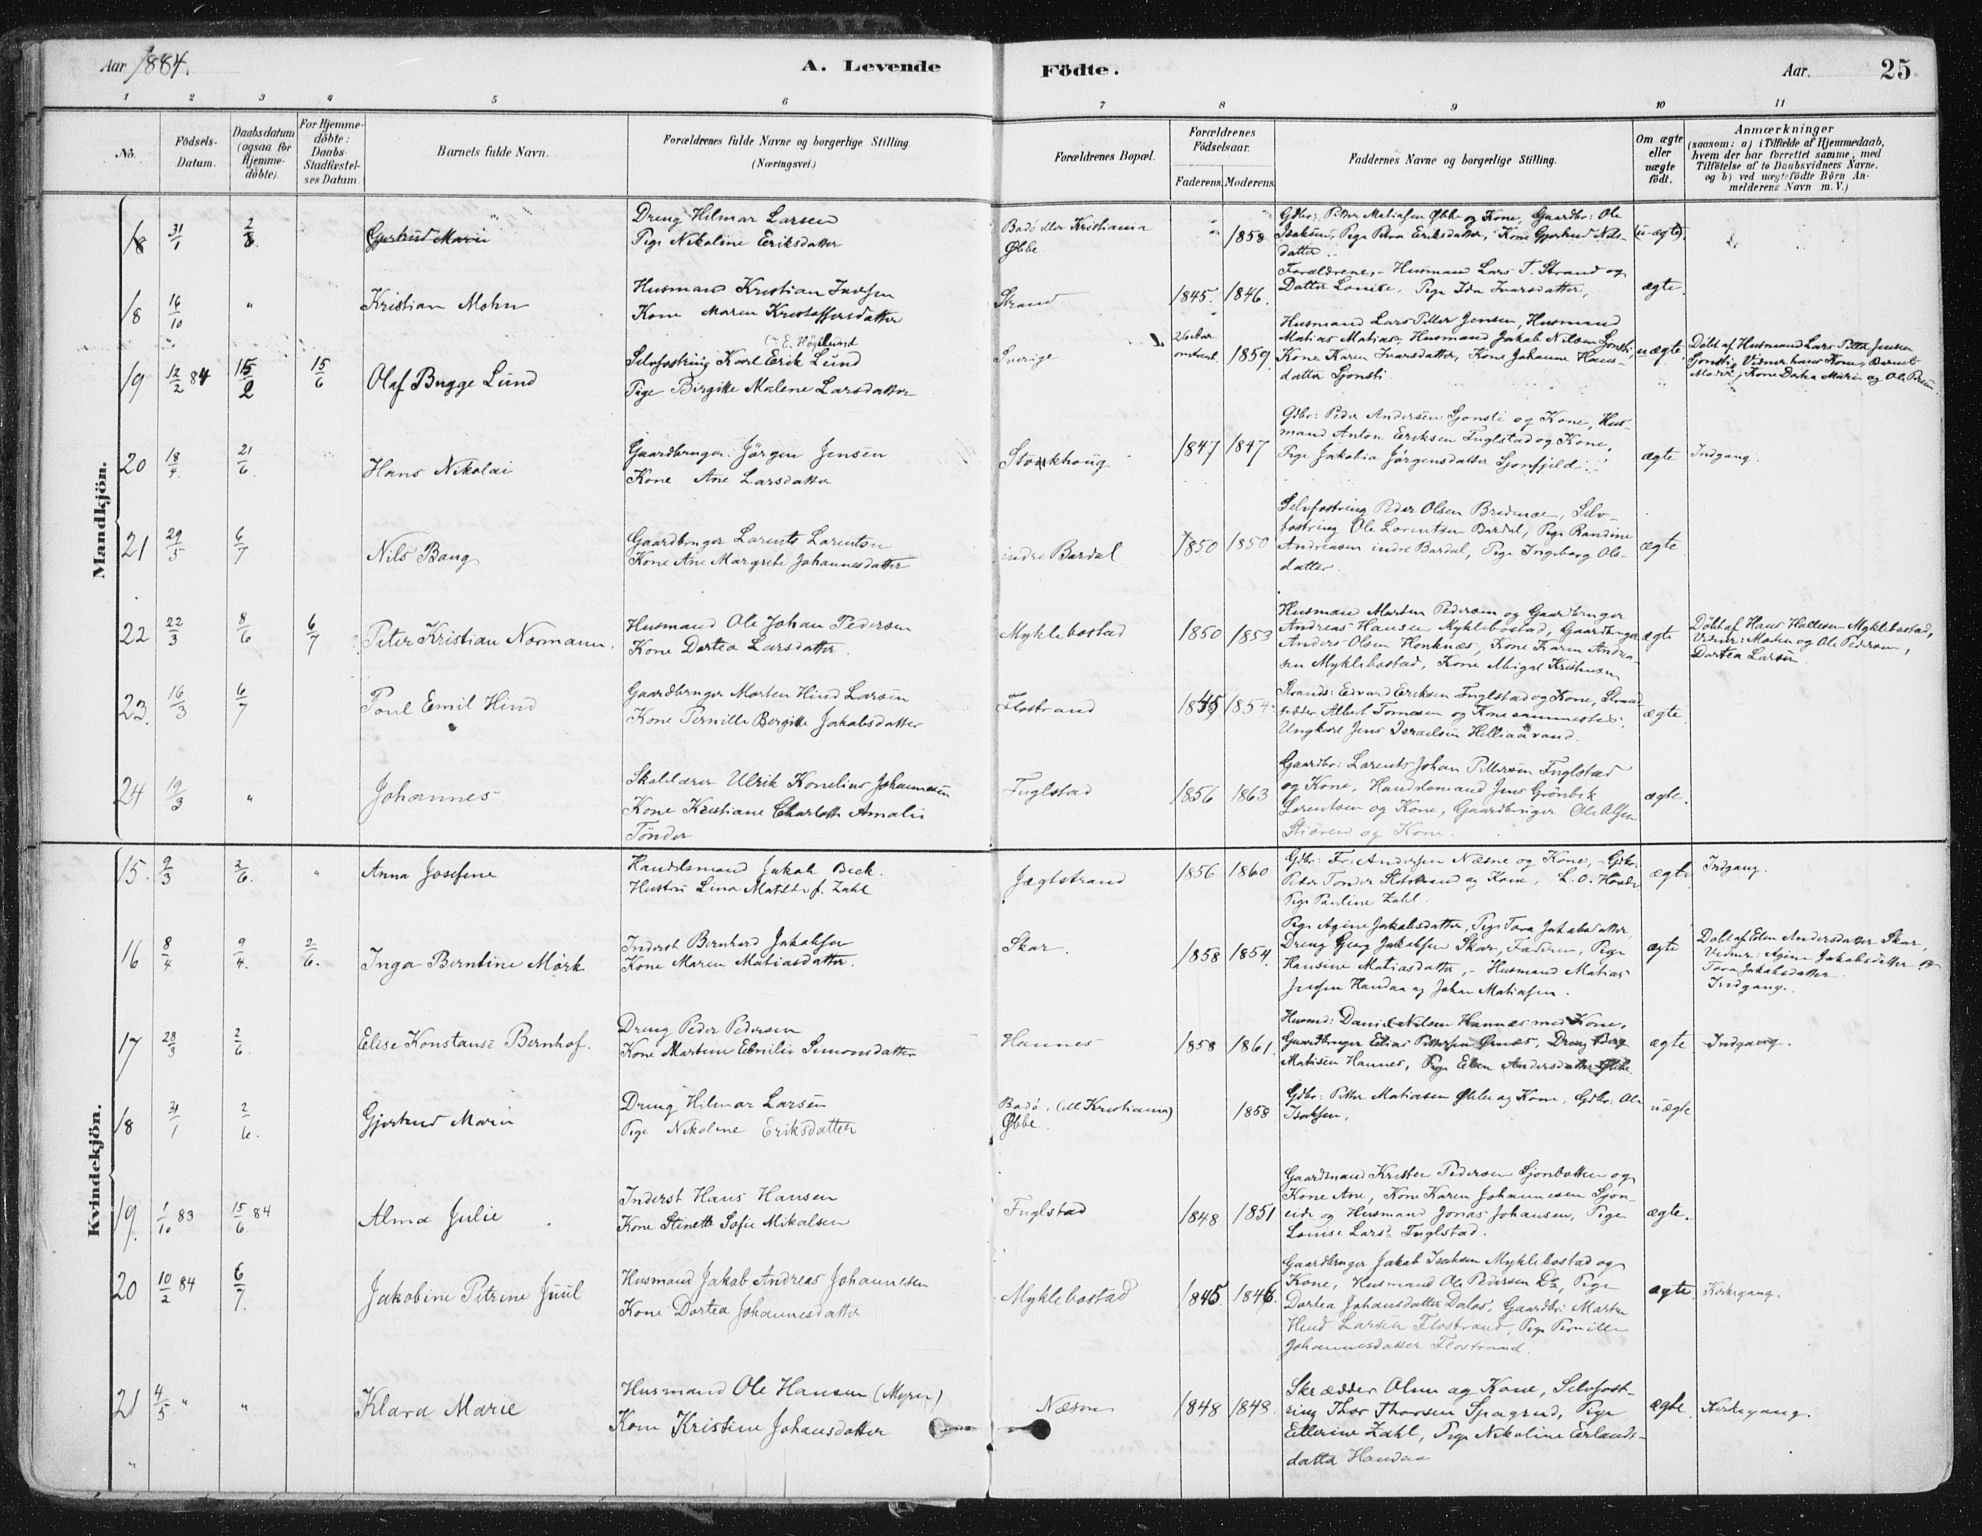 Aar 1884.
A. Levende
Födte.
Aar.
25
1 2 3 4 5 6 7 8 9 10 11
No.
Födsels-Datum.
Daabsdatum (ogsaa for Hjemme-döbte).
For Hjemme-döbte: Daabs-Stadfæstel-ses Datum.
Barnets fulde Navn.
Forældrenes fulde Navne og borgerlige Stilling. (Næringsvei.)
Forældrenes Bopæl.
Forældrenes Födselsaar.
Faderens. Moderens.
Faddernes Navne og borgerlige Stilling.
Om ægte eller uægte födt.
Anmærkninger
(saasom: a) i Tilfælde af Hjemmedaab,
hvem der har forrettet samme, med
Tilföielse af to Daabsvidners Navne.
og b) ved uægtefödte Börn An-
melderens Navn m. V.)
Mandkjön.
18 31/1 Gjertrud Marie
Dreng Hilmar Larsen
Pige Nikoline Eriksdatter
Bodö eller Kristiania
Øbbe
1858
Gdbr: Petter Matiasen Øbbe og Kone, Gaardbr: Ole
Isaksen, Pige Petra Eriksdatter, Kone Gjertrud Nils-
datter
(uægte)
18 16/10 " Kristian Mohn
Husmand Kristian
Kone Maren Kristoffersdatter
Strand
1845. 1846.
Forældrene, Husmand Lars T. Strand og
Datter Louise, Pige Ida Ivarsdatter,
ægte.
19 12/2 84 15/2 15/6 Olaf Bugge Lund
Selvfostring Karl Erik Lund
Pige Birgitte Malene Larsdatter
Sverige
26 Aar omtrent 1859.
Husmand Lars Petter Jensen, Husmand
Matias Matias, Husmand Jakob Nilsen Sjonsti
Kone Karen Ivarsdatter, Kone Johanne Hans-
datter Sjonsti
uægte
Döbt af Husmand Lars Petter Jensen
Sjonsti, Vidner hans Kone, Barnets
Moder, Kone Dorte Marie og Ole
20 18/4. 21/6. Hans Nikolai
Gaardbruger Jörgen Jensen
Kone Ane Larsdatter
Stokkhaug
1847 1847
Gdbr: Peder Andersen Sjonsti og Kone, Hus-
mand Anton Eriksen Fuglstad og Kone,
Pige Jakobia Jörgensdatter Sjonfjeld.
ægte
Indgang.
21 29/5 6/7 Nils Bang
Gaardbruger Lorents Lorentsen
Kone Ane Margrete Johannesdatter
indre Bardal
1850 1850
Selvfostring Peder Olsen Bredenæ, Selv-
fostring Ole Lorentsen Bardal, Pige Randine
Andreasen indre Bardal, Pige Ingeborg Ols-
datter.
ægte
22 22/3 8/6 6/7 Peter Kristian Normann.
Husmand Ole Johan Pedersen
Kone Dortea Larsdatter.
Myklebostad
1850 1853
Husmand Morten Pedersen og Gaardbruger
Andreas Hansen Myklebostad, Gaardbruger
Anders Olsen Honknæs, Kone Karen Andrea-
sen Myklebostad, Kone Abigal Kristiansen
ægte
Döbt af Hans Hansen Myklebostad,
Vidner: Moder og Ole Pedersen,
Dortea Larsen.
23. 16/3 6/7 Poul Emil Hind
Gaardbruger Morten Hind Larsen
Kone Pernille Bergitte Jakobsdatter
Flostrand
1855 1854
Strands: Edvard Eriksen Fuglstad og Kone, Strand-
sidder Albert Tomasen og Kone sammesteds,
Ungkarl Jens Israelsen Helliaavand.
ægte.
24 19/3 " Johannes
Skolelærer Ulrik Konelius Johannesen
Kone Kristiane Charlotte Amalie
Tönder
Fuglstad
1856 1863
Gaardbr: Lorents Johan Pettersen Fuglstad
og Kone, Handelsmand Jens Grönbek
Lorentsen og Kone, Gaardbruger Ole Olsen
Stiören og Kone.
ægte.
Kvindekjön.
15. 9/3 2/6. " Anna Josefine
Handelsmand Jakob Beck
Hustru Lina Matilde f. Zahl
Jægtstrand
1856 1860
Gdbr: Fr: Andersen Næsne og Kone, Gdbr:
Peter Tonder Slotstrand og Kone, L. O.
Pige Pauline Zahl.
ægte
Indgang.
16 8/4 9/4. 2/6. Inga Berntine Mörk
Inderst Bernhard Jakobsen
Kone Maren Matiasdatter.
Skar.
1858 1854.
Pige Agine Jakobsdatter, Pige Tora Jakobsdatter,
Dreng Georg Jakobsen Skar, Faderen, Pige
Hansine Matiasdatter, Husmand Matias
Jensen Handaa og Johan Matiasen.
ægte
Döbt af Elen Andersdatter Skar,
Vidner: Agine Jakobsdatter og
Tora Jakobsdatter.
Indgang.
17 28/3 2/6. Elise Konstanse Bernhof.
Dreng Peder Pedersen
Kone Martine Emilie Simonsdatter
Hannes
1858 1861.
Husmd: Daniel Nilsen Hannæs med Kone,
Gaardbruger Elias Pettersen Ørnæs, Dreng Berg
Matisen Hannes, Pige Elen Andersdatter Øbbe.
ægte
Indgang.
18 31/1 2/6. Gjertrud Marie
Dreng Hilmar Larsen
Pige Nikoline Eriksdatter
Bodö, (ell Kristiania)
Øbbe.
1858
Gdbr: Petter Matiasen Øbbe og Kone, Gdbr: Ole
Isaksen,
uægte
19. 1/10 83 15/6. 84 Alma Julie
Inderst Hans Hansen
Kone Stinette Sofie Mikalsen
Fuglstad
1848 1851
Gaardmand Krister Pedersen Sjonbotten og
Kone Ane, Kone Karen Johannesen Sjon-
eide og Husmand Jonas Johansen, Pige
Louise Lars: Fuglstad.
ægte.
20 10/2 84 6/7. Jakobine Petrine Juul
Husmand Jakob Andreas Johannesen
Kone Dortea Johannesdatter
Myklebostad
1845. 1846.
Gaardbruger Jakob Isaksen Myklebostad og
Kone, Husmand Ole Pedersen Do, Pige
Dortea Johansdatter Dalos, Gaardbr: Morten
Hind Larsen Flostrand, Pige Pernille
Johannesdatter Flostrand.
ægte.
Kirkegang.
21 4/5 " " Klara Marie
Husmand Ole Hansen (Myren)
Kone Kristine Johansdatter
Næsne
1848 1848.
Skrædder Olsen og Kone, Selvfost-
ring Thor Thorsen Spagrud, Pige
Ellerine Zahl, Pige Nikoline Erlands-
datter Handaa
ægte
Kirkegang.